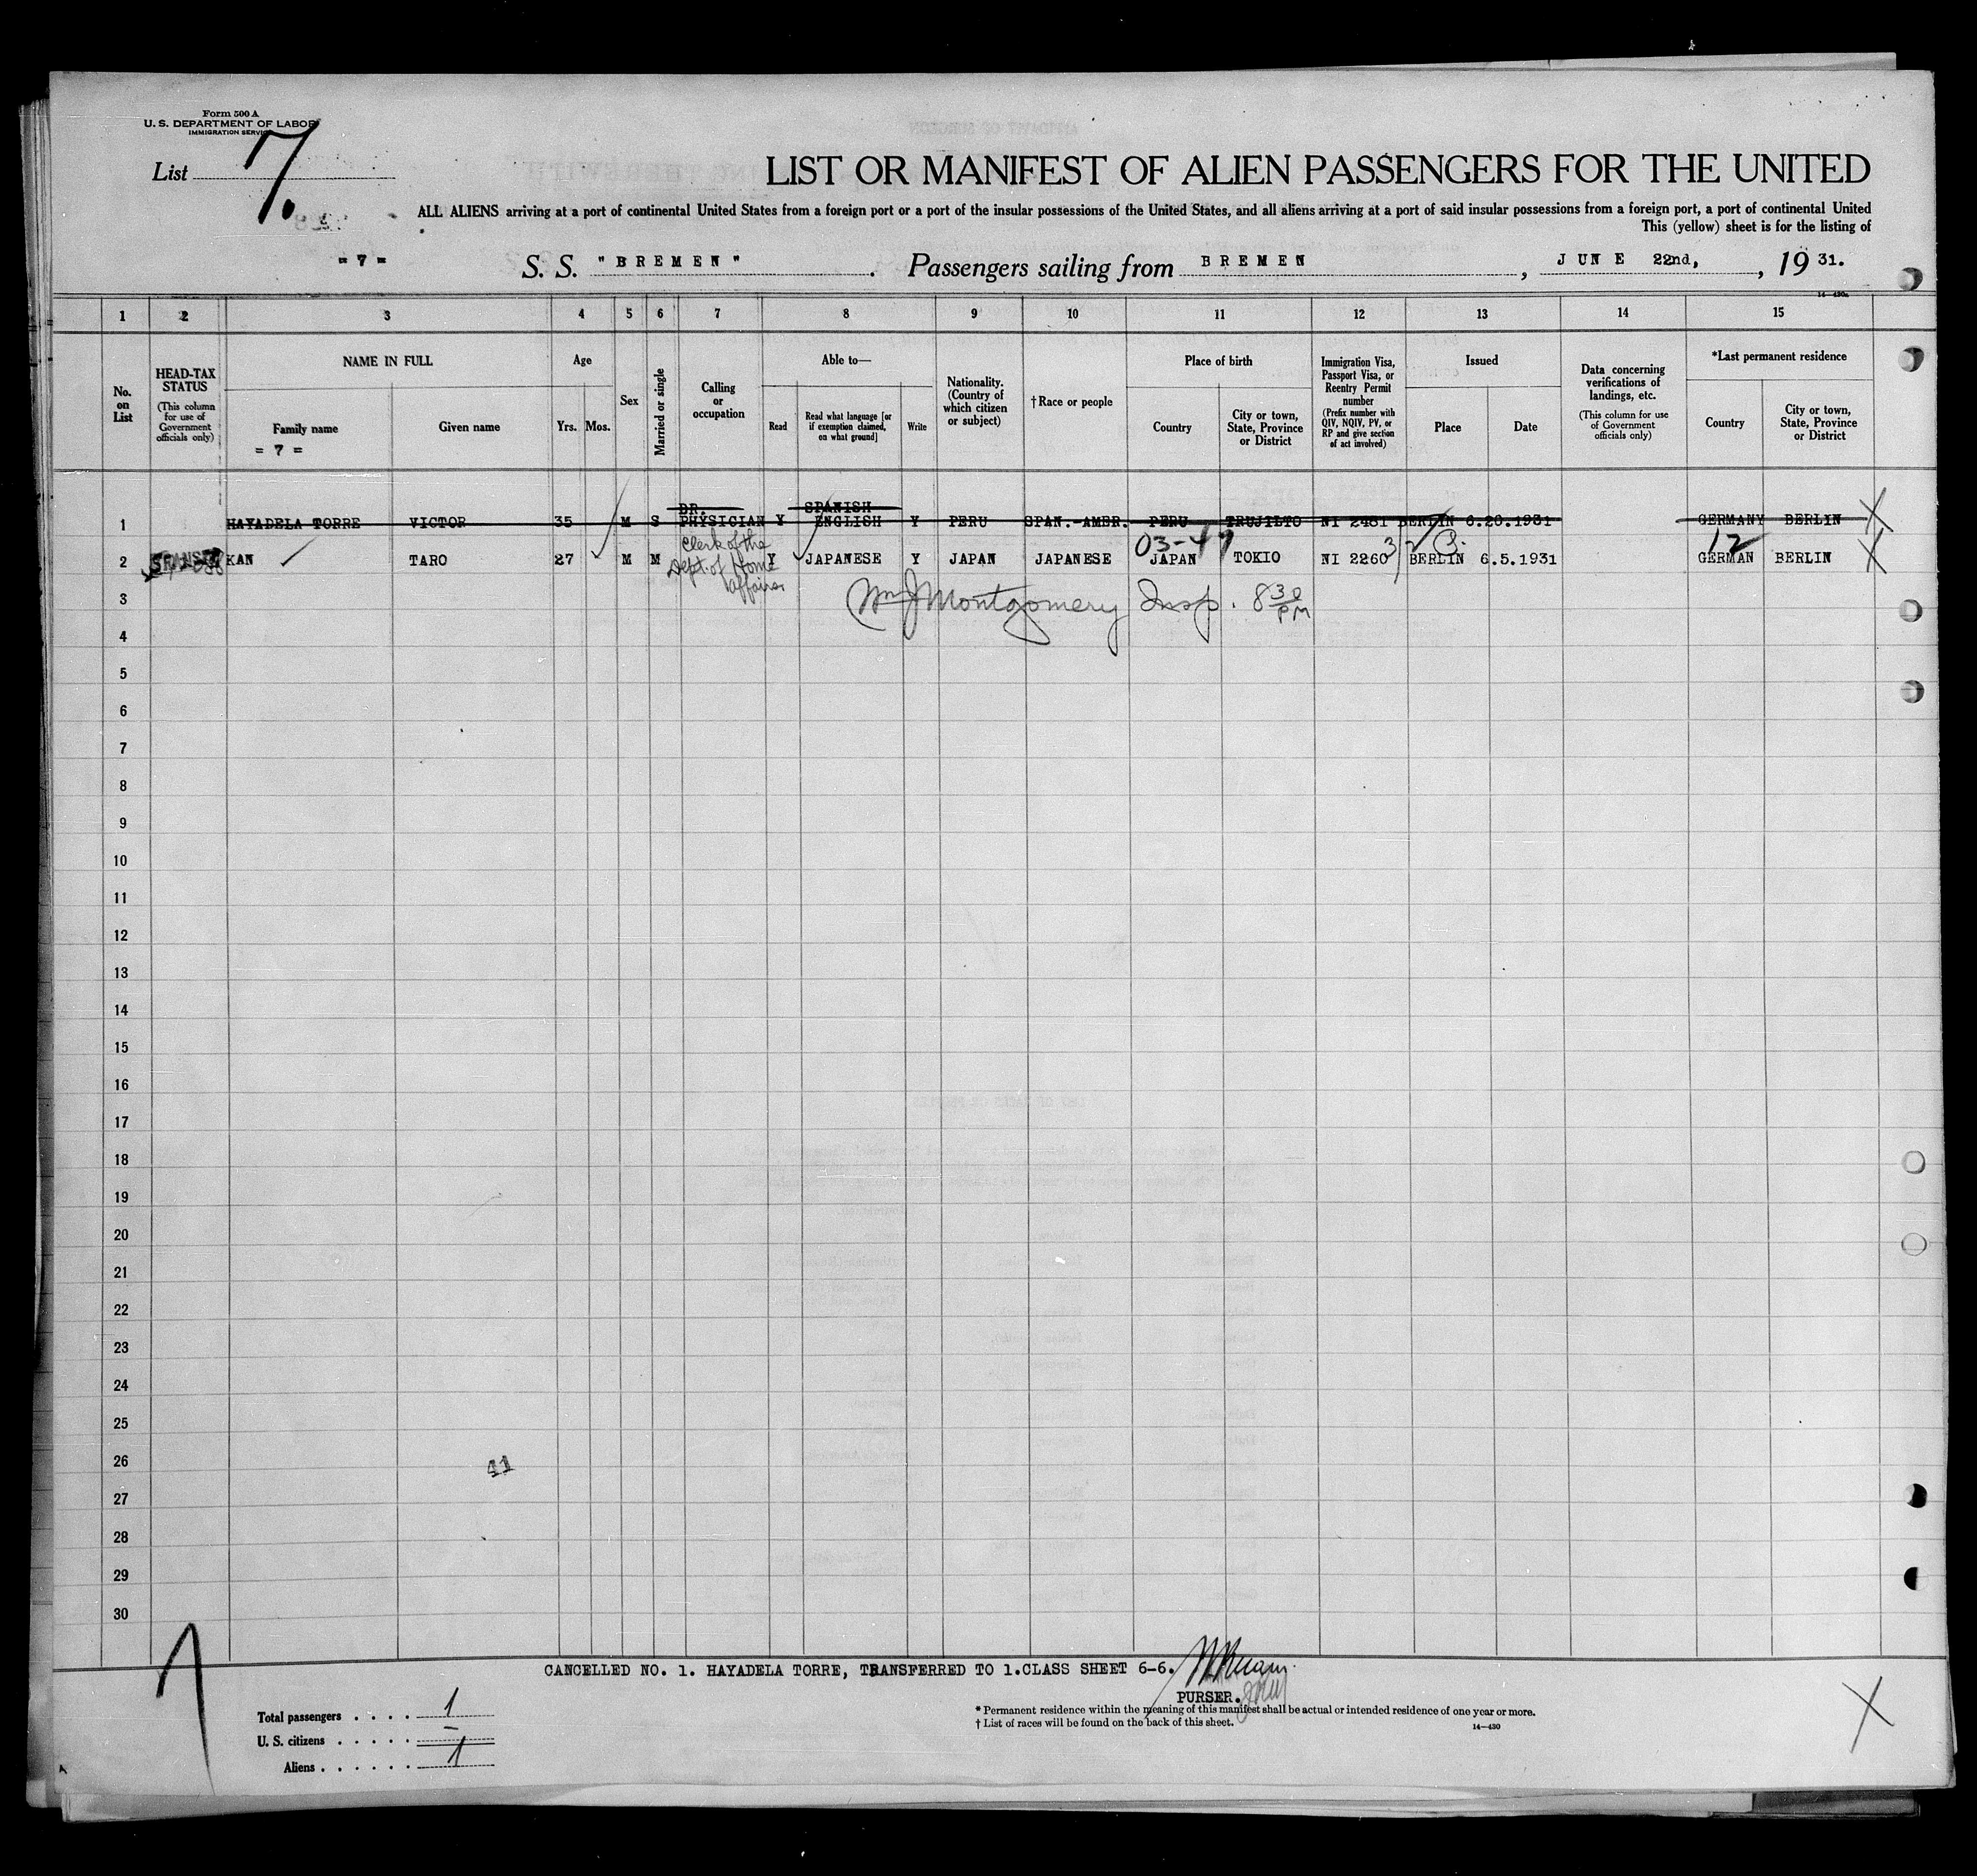 Form 500 A
U. S. DEPARTMENT OF LABOR
IMMIGRATION SERVICE
List 7.
LIST OR MANIFEST OF ALIEN PASSENGERS FOR THE UNITED
ALL ALIENS arriving at a port of continental United States from a foreign port or a port of the insular possessions of the United States, and all aliens arriving at a port of said insular possessions from a foreign port, a port of continental United
This (yellow) sheet is for the listing of
= 7 = S. S. "BREMEN". Passengers sailing from BREMEN, JUNE 22nd, 1931.
1 2 3 4 5 6 7 8 9 10 11 12 13 14 15
No. on List
HEAD-TAX STATUS (This column for use of Government officials only)
NAME IN FULL
Family name
= 7 =
Given name
Age
Yrs. Mos.
Sex
Married or single
Calling or occupation
Able to—
Read
Read what language [or if exemption claimed, on what ground]
Write
Nationality. (Country of which citizen or subject)
†Race or people
Place of birth
Country
City or town, State, Province or District
Immigration Visa, Passport Visa, or Reentry Permit number (Prefix number with QIV, NQIV, PV, or RP and give section of act involved)
Issued
Place
Date
Data concerning verifications of landings, etc. (This column for use of Government officials only)
*Last permanent residence
Country
City or town, State, Province or District
DR. SPANISH
1 HAYADELA TORRE VICTOR 35 M S PHYSICIAN Y ENGLISH Y PERU SPAN.-AMER. PERU TRUJILTO NI 2481 BERLIN 6.20.1931 GERMANY BERLIN X
Clerk of the Dept. of Home Affaires
03-47
12
2 KAN TARO 27 M M Y JAPANESE Y JAPAN JAPANESE JAPAN TOKIO NI 2260 BERLIN 6.5.1931 GERMAN BERLIN X
3 Wm J Montgomery Insp. 8 30 PM
4
5
6
7
8
9
10
11
12
13
14
15
16
17
18
19
20
21
22
23
24
25
26
41
27
28
29
30
CANCELLED NO. 1. HAYADELA TORRE, TRANSFERRED TO 1.CLASS SHEET 6-6.
PURSER.
Total passengers . . . . 1
U. S. citizens . . . . . —
Aliens . . . . . . 1
* Permanent residence within the meaning of this manifest shall be actual or intended residence of one year or more.
† List of races will be found on the back of this sheet.
14—430
X